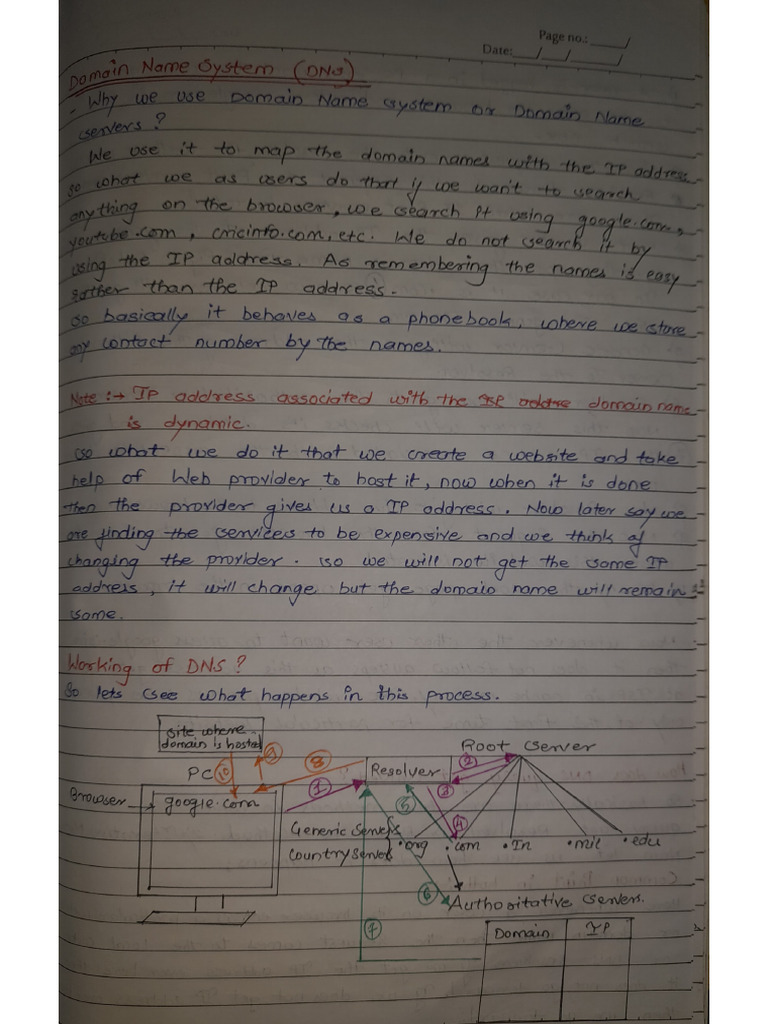 Page no.: ___/
Date:___/___/______/
Domain Name System (DNS)
- Why we use Domain Name System or Domain Name
servers?
We use it to map the domain names with the IP address
so what we as users do that if we want to search
anything on the browser, we search it using google.com,
youtube.com, cricinfo.com, etc. We do not search it by
using the IP address. As remembering the names is easy
rather than the IP address.
So basically it behaves as a phonebook, where we store
any contact number by the names.
Note :→ IP address associated with the domain name
is dynamic.
So what we do it that we create a website and take
help of Web provider to host it, now when it is done
then the provider gives us a IP address. Now later say we
are finding the services to be expensive and we think of
changing the provider. So we will not get the same IP
address, it will change but the domain name will remain
same.
Working of DNS?
So lets see what happens in this process.
site where
domain is hosted
Root Server
PC 10 9 8 Resolver 2
3
Browser google.com 1 5
4
Generic Servers
Country Servers .org .com .In .mil .edu
6 Authoritative Servers.
7 Domain IP